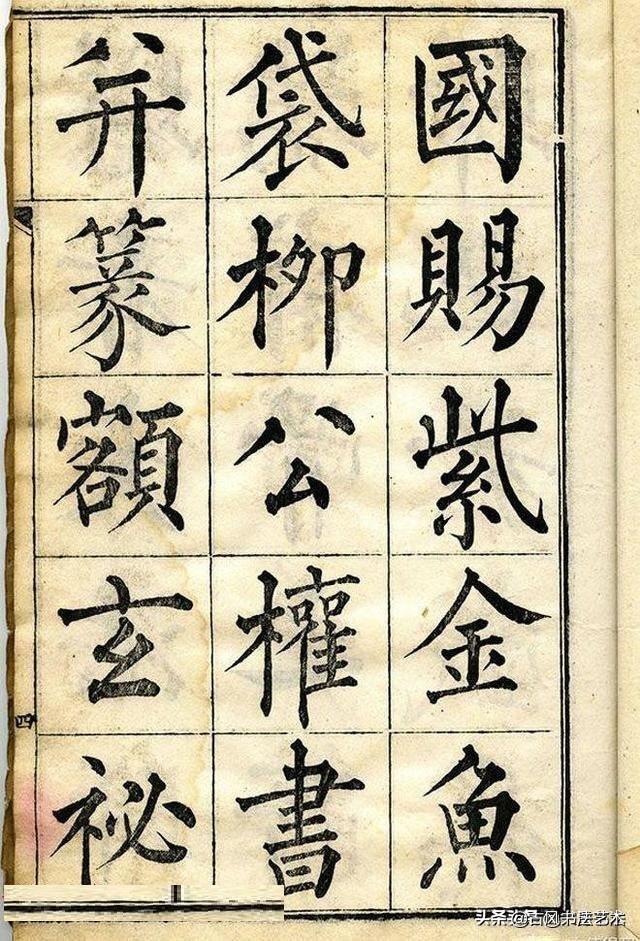 國賜紫金魚
袋柳公權書
并篆額玄秘
四
头条@古风书法艺术